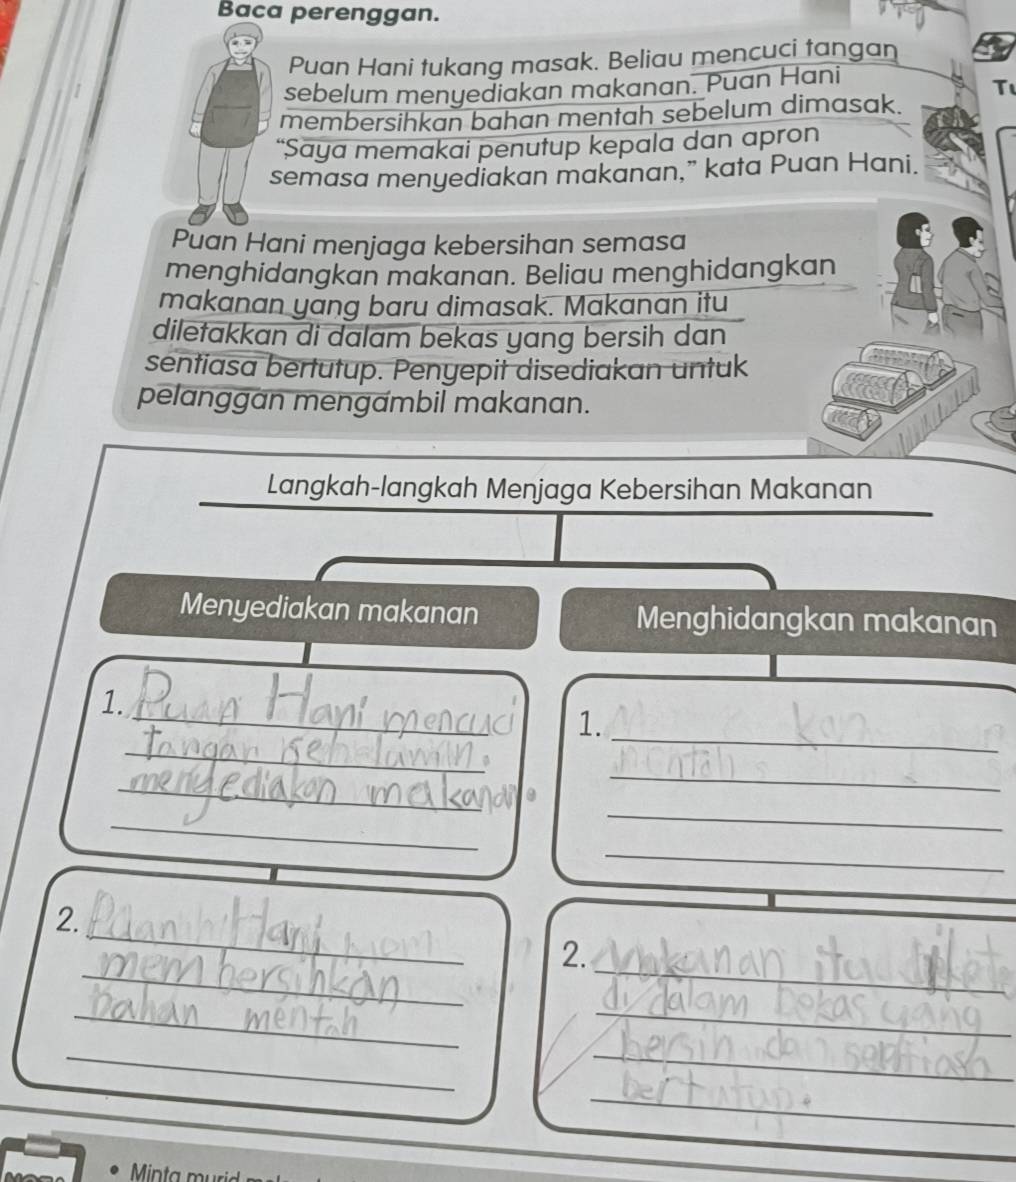 Baca perenggan.
Puan Hani tukang masak. Beliau mencuci tangan
sebelum menyediakan makanan. Puan Hani
membersihkan bahan mentah sebelum dimasak.
“Saya memakai penutup kepala dan apron
semasa menyediakan makanan,” kata Puan Hani.
Puan Hani menjaga kebersihan semasa
menghidangkan makanan. Beliau menghidangkan
makanan yang baru dimasak. Makanan itu
diletakkan di dalam bekas yang bersih dan
sentiasa bertutup. Penyepit disediakan untuk
pelanggan mengambil makanan.
Langkah-langkah Menjaga Kebersihan Makanan
Menyediakan makanan
Menghidangkan makanan
1. Puan Hani mencuci
tangan
menyediakan makanan.
2. Puan Hani
membersihkan
bahan mentah
1.
2. Makanan itu
di dalam bekas yang
bersih dan
bertutup.
Minta murid